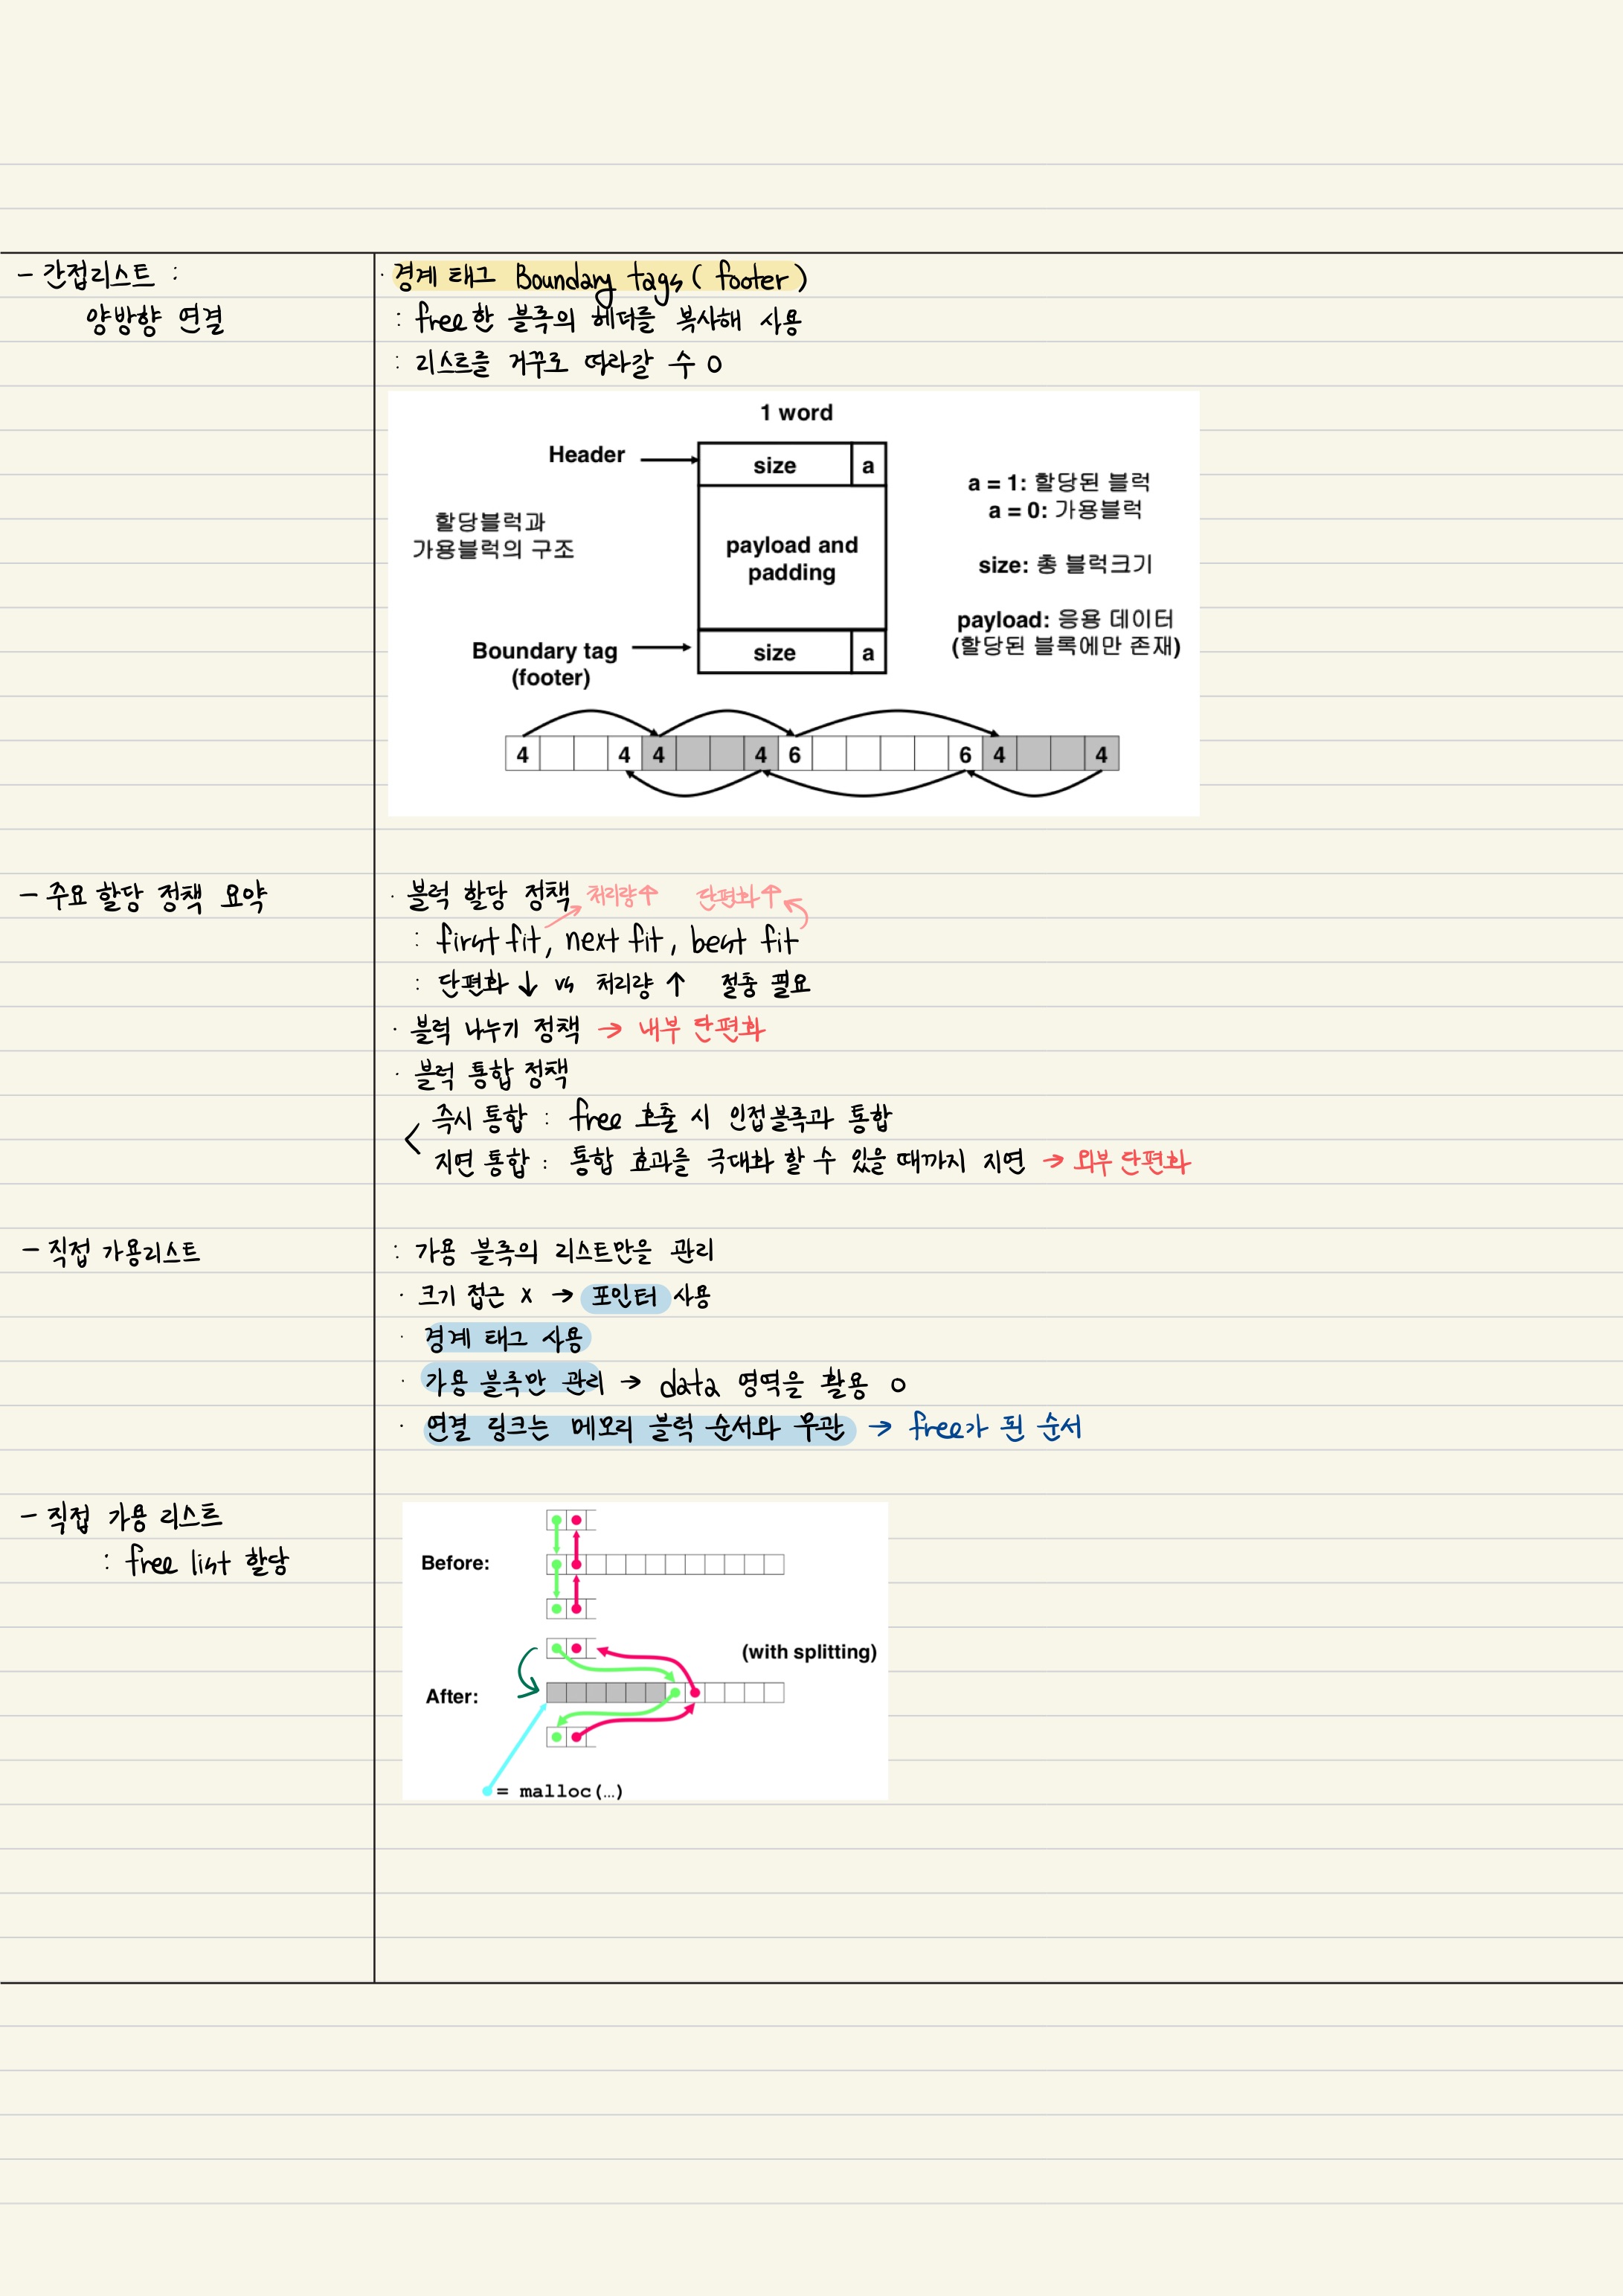 - 간접리스트 :
양방향 연결
· 경계 태그 Boundary tags ( footer )
: free한 블록의 헤더를 복사해 사용
: 리스트를 거꾸로 따라갈 수 O
1 word
Header
size a
a = 1: 할당된 블럭
a = 0: 가용블럭
할당블럭과
가용블럭의 구조
payload and
padding
size: 총 블럭크기
payload: 응용 데이터
(할당된 블록에만 존재)
Boundary tag
(footer)
size a
4 4 4 4 6 6 4 4
- 주요 할당 정책 요약
· 블럭 할당 정책 처리량↑ 단편화↑
: first fit, next fit, best fit
: 단편화↓ vs 처리량↑ 절충 필요
· 블럭 나누기 정책 → 내부 단편화
· 블럭 통합 정책
< 즉시 통합 : free 호출 시 인접블록과 통합
지연 통합 : 통합 효과를 극대화 할 수 있을 때까지 지연 → 외부 단편화
- 직접 가용리스트
: 가용 블록의 리스트만을 관리
· 크기 접근 x → 포인터 사용
· 경계 태그 사용
· 가용 블록만 관리 → data 영역을 활용 O
· 연결 링크는 메모리 블럭 순서와 무관 → free가 된 순서
- 직접 가용 리스트
: free list 할당
Before:
(with splitting)
After:
= malloc(…)